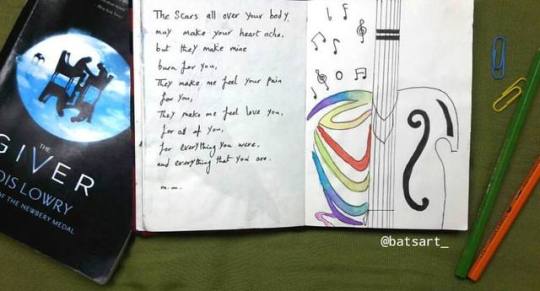 THE
GIVER
LOIS LOWRY
OF THE NEWBERY MEDAL
The Scars all over your body,
may make your heart ache,
but they make mine
burn for you,
They make me feel your pain
for you,
They make me feel love you,
for all of you,
for everything you were,
and everything that you are.
m.m.
@batsart_